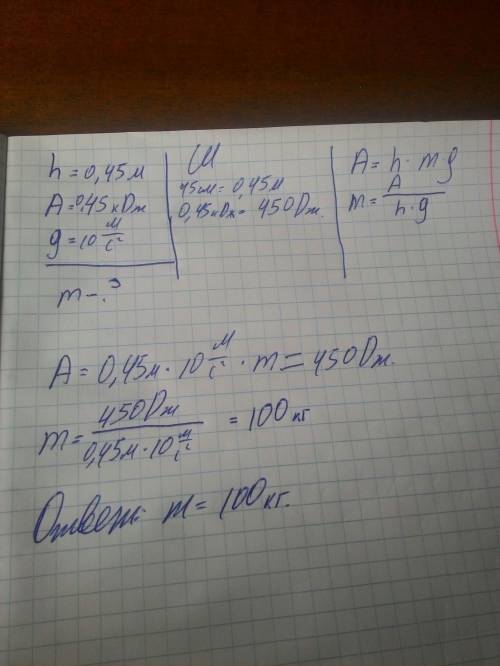 h = 0,45м
A = 0,45 кДж
g = 10 м/с²
m - ?
СИ
45см = 0,45м
0,45кДж = 450Дж.
A = h · m g
m = A / h · g
A = 0,45м · 10 м/с² · m = 450Дж.
m = 450Дж / 0,45м · 10 м/с² = 100кг
Ответ: m = 100кг.